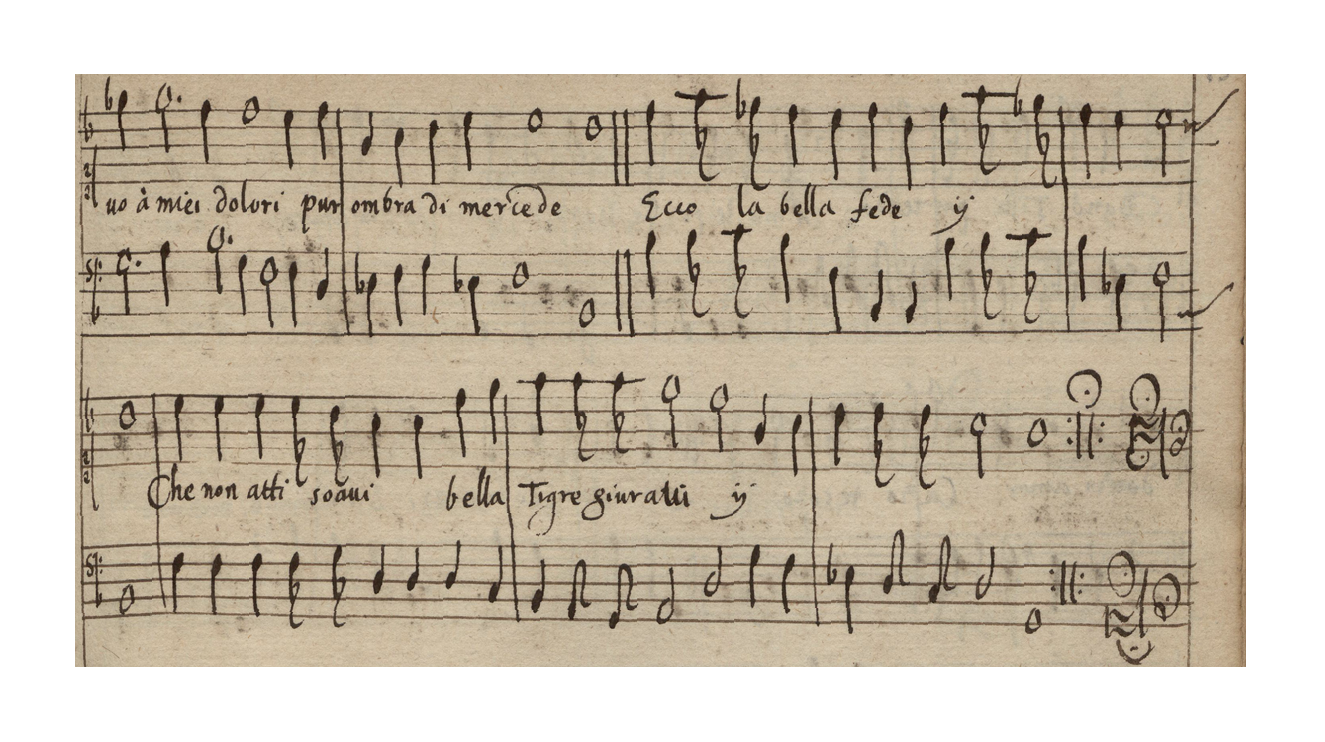 uo à miei dolori pur ombra di mercede Ecco la bella fede ij
Che non atti soaui bella Tigre giurasti ij